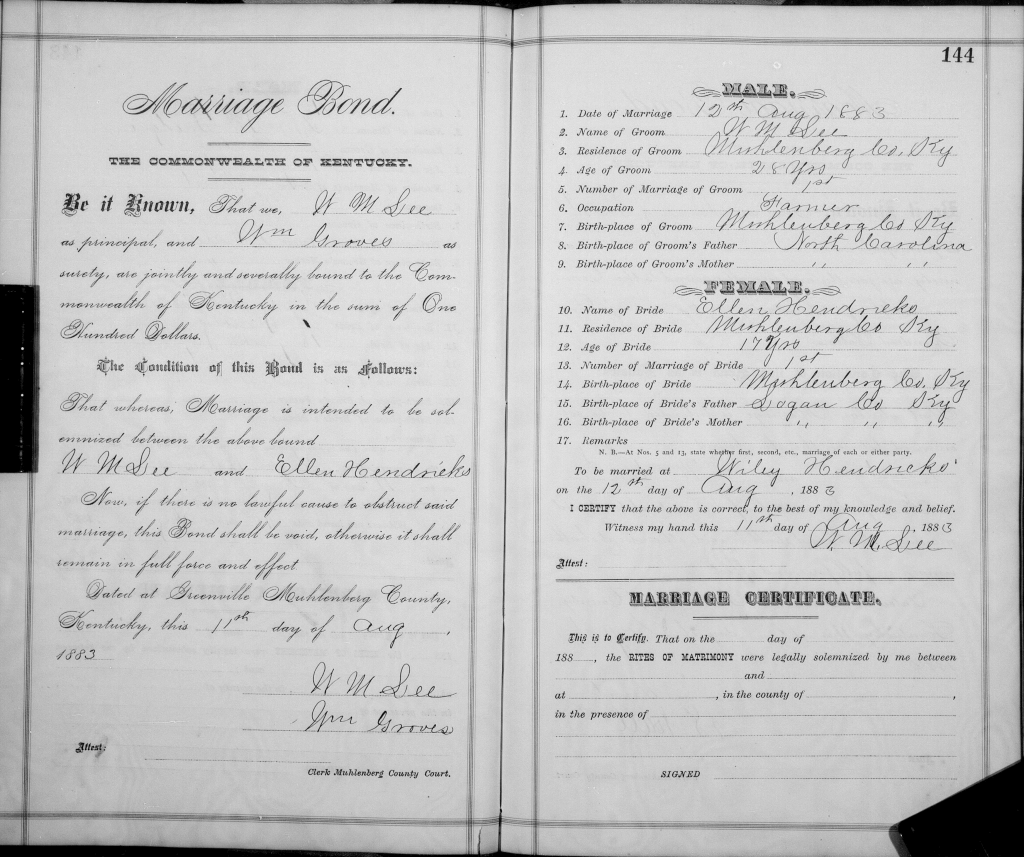 Marriage Bond.
THE COMMONWEALTH OF KENTUCKY.
Be it Known, That we, W M Lee
as principal, and Wm Groves as
surety, are jointly and severally bound to the Com-
monwealth of Kentucky in the sum of One
Hundred Dollars.
The Condition of this Bond is as Follows:
That whereas, Marriage is intended to be sol-
emnized between the above bound
W M Lee and Ellen Hendricks
Now, if there is no lawful cause to obstruct said
marriage, this Bond shall be void, otherwise it shall
remain in full force and effect
Dated at Greenville Muhlenberg County,
Kentucky, this 11th day of Aug ,
1883
W M Lee
Wm Groves
Attest:
Clerk Muhlenberg County Court.
144
MALE.
1. Date of Marriage 12th Aug 1883
2. Name of Groom W M Lee
3. Residence of Groom Muhlenberg Co, Ky
4. Age of Groom 28 Yrs
5. Number of Marriage of Groom 1st
6. Occupation Farmer
7. Birth-place of Groom Muhlenberg Co Ky
8. Birth-place of Groom's Father North Carolina
9. Birth-place of Groom's Mother " "
FEMALE.
10. Name of Bride Ellen Hendricks
11. Residence of Bride Muhlenberg Co Ky
12. Age of Bride 17 Yrs
13. Number of Marriage of Bride 1st
14. Birth-place of Bride Muhlenberg Co, Ky
15. Birth-place of Bride's Father Logan Co Ky
16. Birth-place of Bride's Mother " " "
17. Remarks
N. B.—At Nos. 5 and 13, state whether first, second, etc., marriage of each or either party.
To be married at Wiley Hendricks'
on the 12th day of Aug , 1883
I CERTIFY that the above is correct, to the best of my knowledge and belief.
Witness my hand this 11th day of Aug , 1883
W. M. Lee
Attest:
MARRIAGE CERTIFICATE.
This is to Certify, That on the day of
188 , the RITES OF MATRIMONY were legally solemnized by me between
and
at , in the county of ,
in the presence of
SIGNED